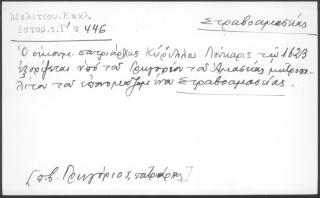 Μελετίου. Εκκλ.
Ιστορ. τ. Γ' σ 446
Στραβοαμασείας
Ὁ οἰκουμ. πατριάρχης Κύριλλος Λούκαρις τῷ 1623
ἐξορίζεται ὑπὸ τοῦ Γρηγορίου τοῦ Ἀμασείας μητροπο-
λίτου τοῦ ἐπονομαζομένου Στραβοαμασείας.
[π.β. Γρηγόριος, πατριάρχης]